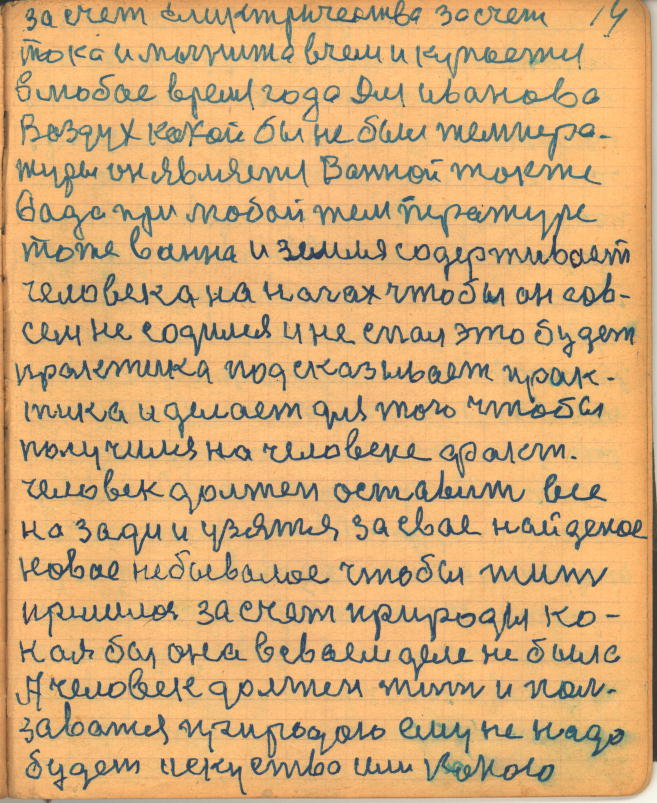 за счет електричества за счет 14
тока и магнита в чем и купается
в любое время года Для иванова
Воздух какой бы не были темпера-
туры он является Ванной также
Вада при любой температуре
тоже ванна и земля содерживает
человека на нагах чтобы он сов-
сем не содился и не спал это будет
практика подсказывает прак-
тика и делает для того чтобы
получился на человеке факт.
человек должен оставит все
на зади и узятся за свае найденое
новае небывалое чтобы жит
пришлося за счет природы ка-
кая бы она в сваем деле не была
А человек должен жит и пол-
заватся природою ему не надо
будет искуство или какого